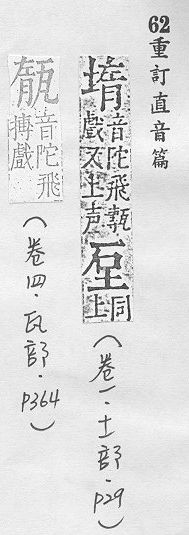 62 重訂直音篇
堶 音陀飛甎戲又上声 同上
(卷一·土部·p29)
音陀飛搏戲
(卷四·瓦部·p364)